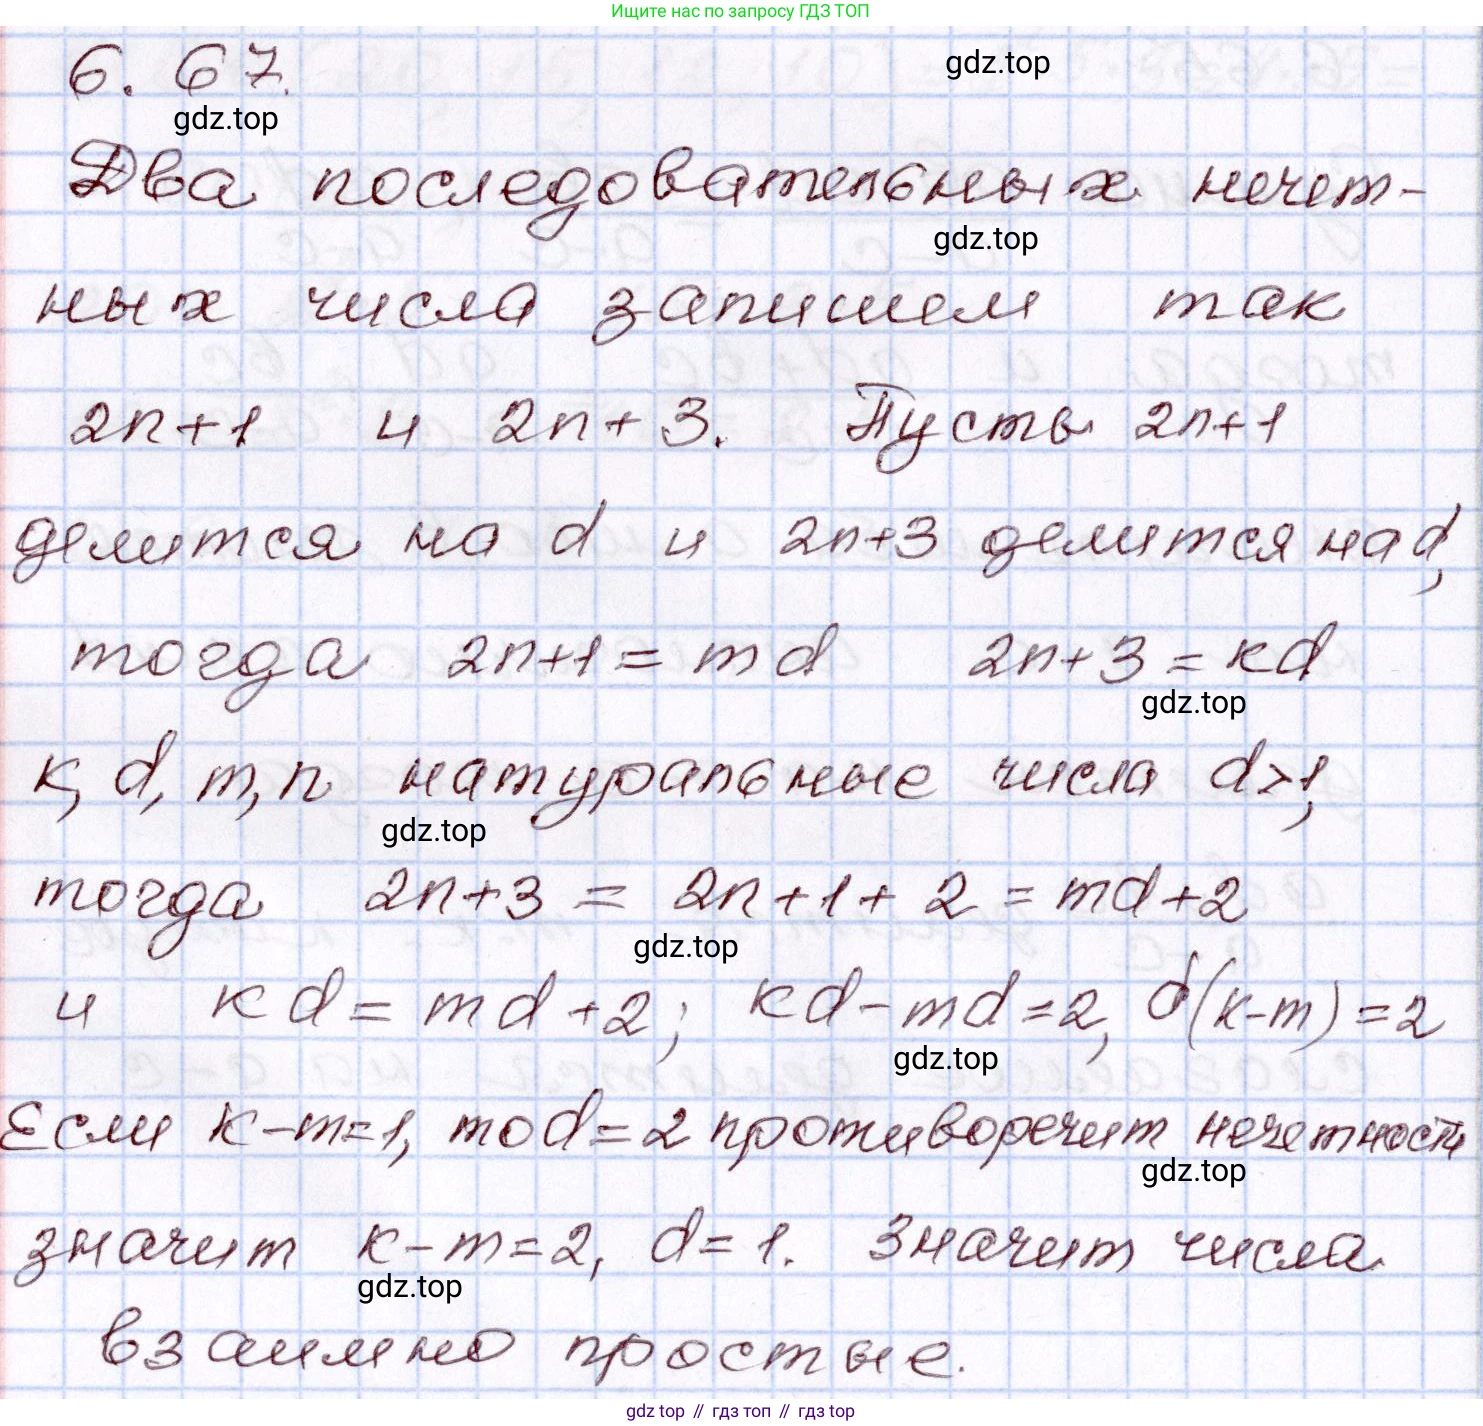 Ищите нас по запросу ГДЗ ТОП
6. 67.
gdz.top
gdz.top
Два последовательных нечет-
gdz.top
ных числа запишем так
2n+1 и 2n+3. Пусть 2n+1
делится на d и 2n+3 делится на d,
тогда 2n+1=md 2n+3=kd
gdz.top
k, d, m, n натуральные числа d>1,
gdz.top
тогда 2n+3 = 2n+1+2 = md+2
gdz.top
и kd = md+2; kd-md=2, d(k-m)=2
gdz.top
Если k-m=1, то d=2 противоречит нечетности
gdz.top
значит k-m=2, d=1. Значит числа
gdz.top
взаимно простые.
gdz.top // гдз топ // гдз top